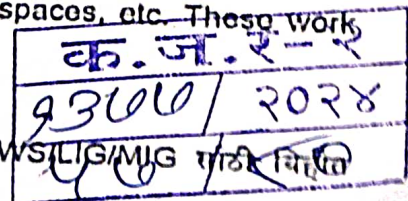 spaces, etc. These work
क. ज. र - २
१३७७ / २०२४
WS/LIG/MIG साठी